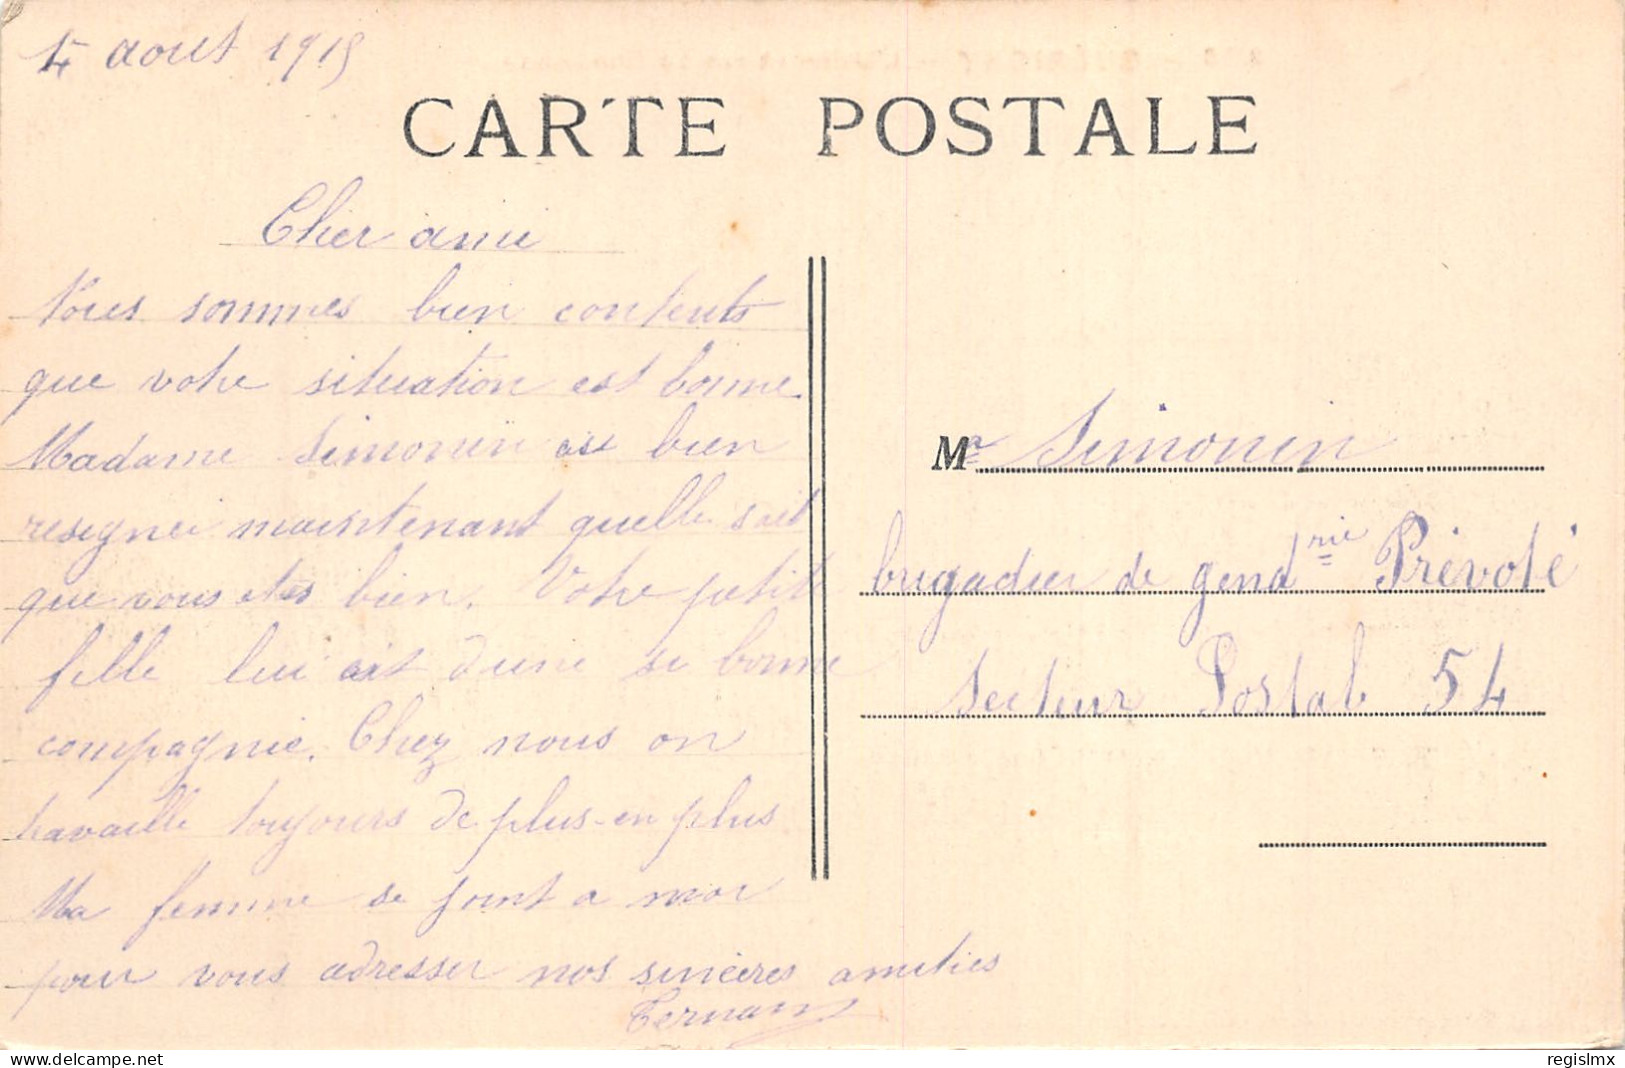 4 aout 1915
CARTE POSTALE
Cher ami
Nous sommes bien contents
que votre situation est bonne.
Madame Simonin est bien
resignei maintenant quelle sait
que vous etes bien. Votre petite
fille lui ait d'une si bonne
compagnie. Chez nous on
travaille toujours de plus-en plus
Ma femme se joint a moi
pour vous adresser nos sincères amitiés
Mr Simonin
brigadier de gendrie Prévoté
Secteur Postal 54
delcampe.net
regislmx